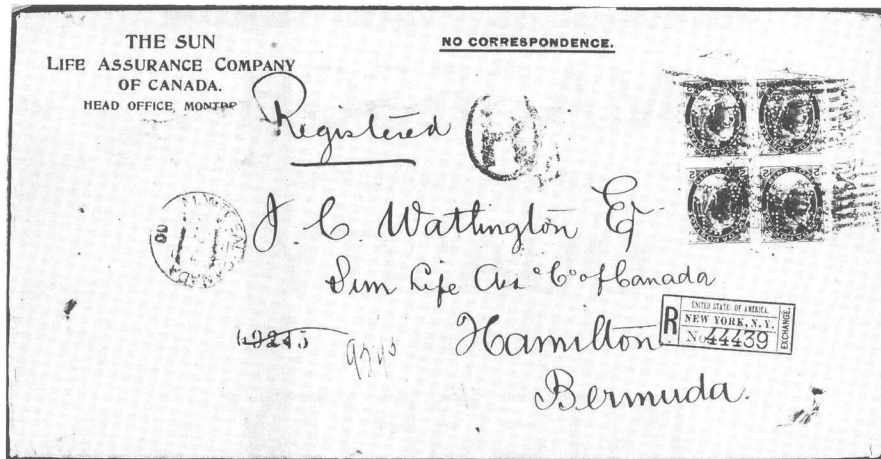 THE SUN
LIFE ASSURANCE COMPANY
OF CANADA.
HEAD OFFICE, MONTRE
NO CORRESPONDENCE.
Registered
R
J. C. Watlington Eq
Sun Life Ass ce Co of Canada
Hamilton
Bermuda.
CANADA
00
R
UNITED STATES OF AMERICA.
NEW YORK, N.Y.
No 44439
EXCHANGE.